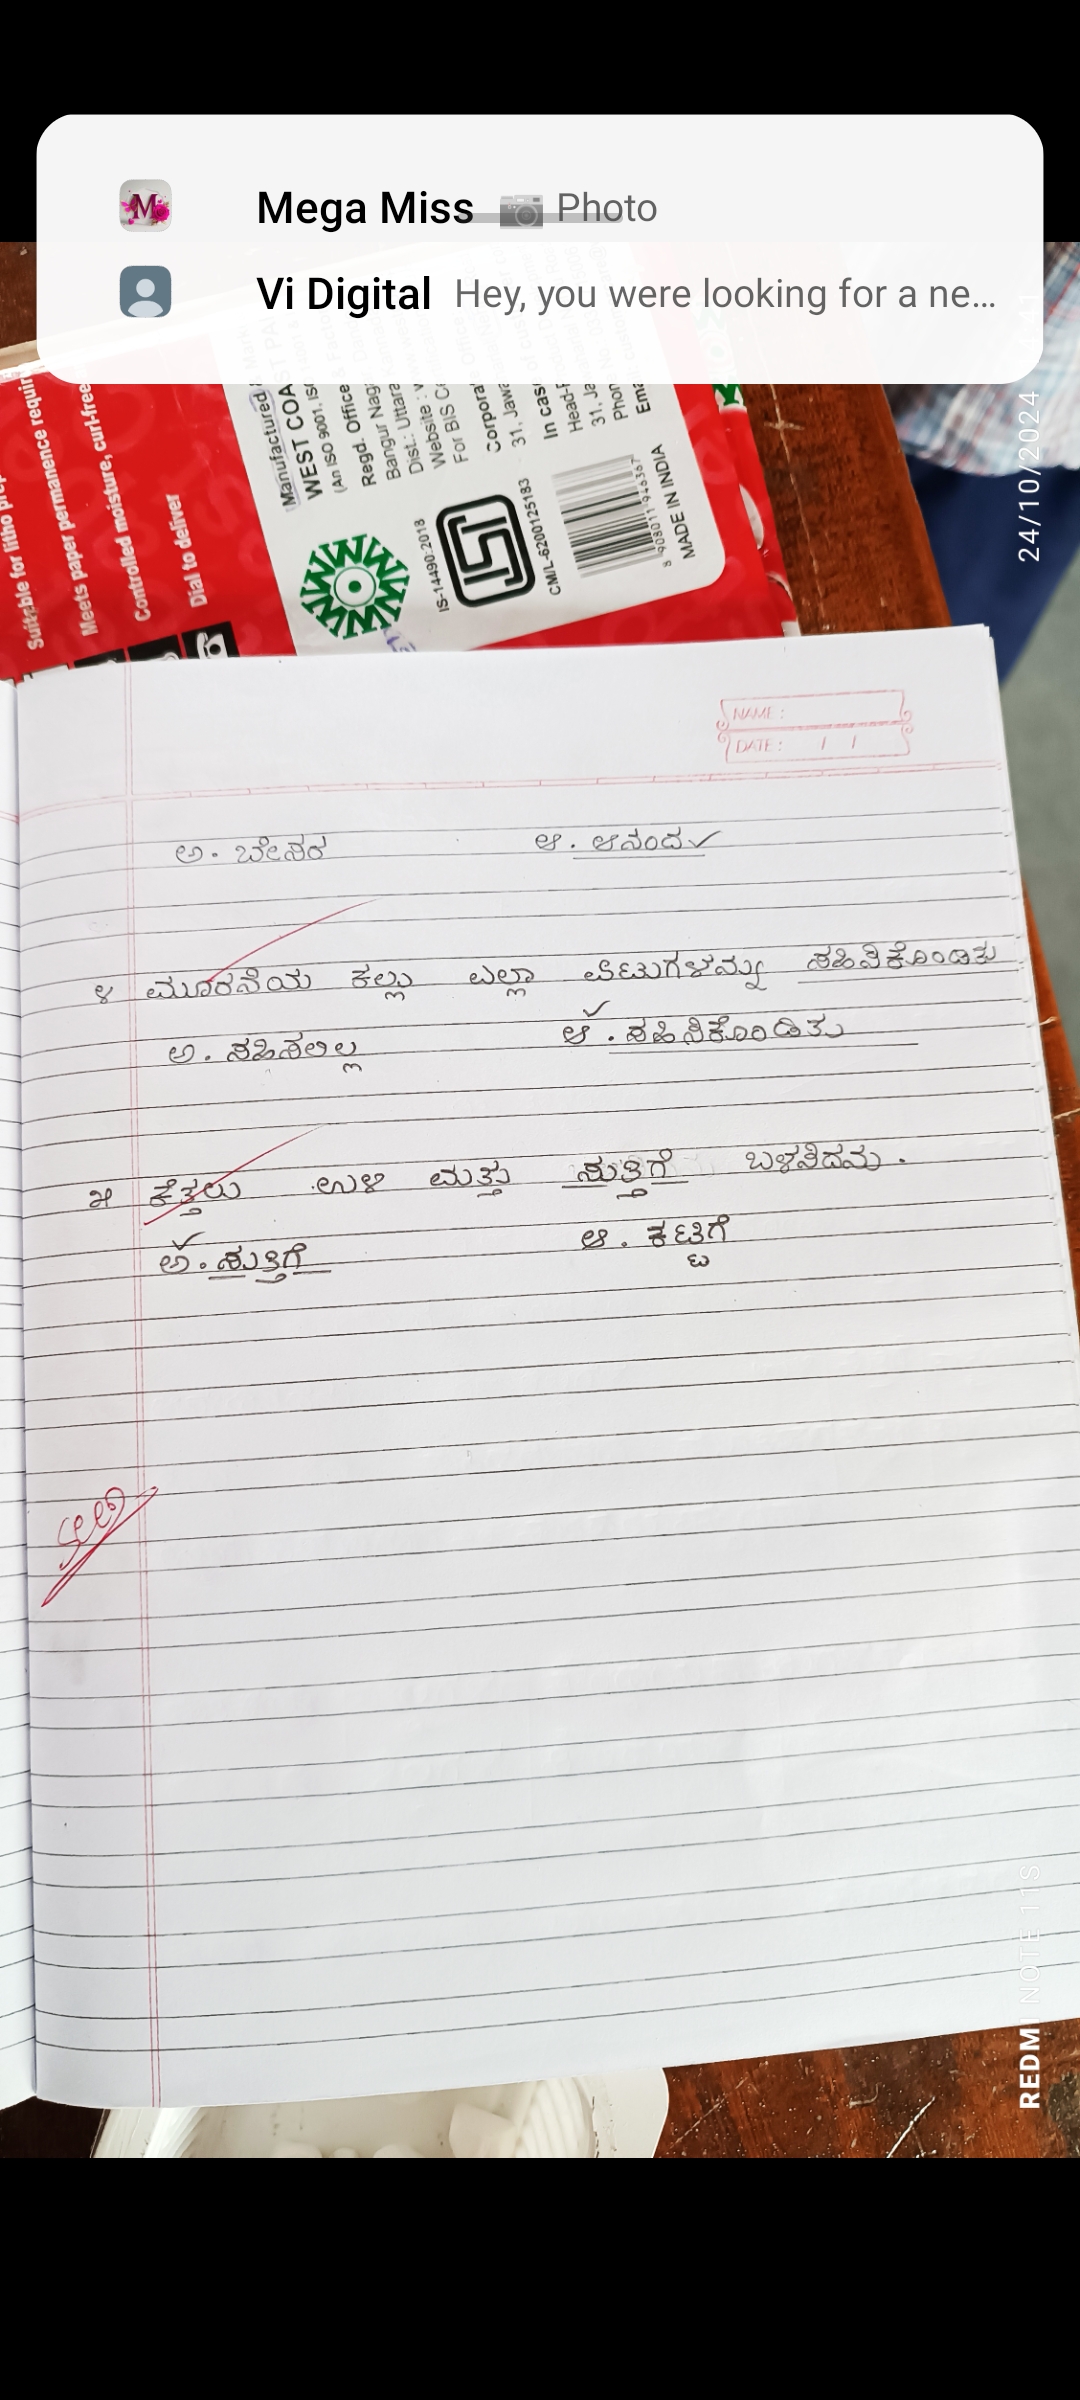 Mega Miss 📷 Photo
Vi Digital Hey, you were looking for a ne...
Suitable for litho
Meets paper permanence
Controlled moisture, curl-free
Dial to deliver
Manufactured
WEST COA
(An ISO 9001,
Regd. Office
Bangur Nag
Dist.: Uttara
Website :
For BIS
Corpora
31, Jaw
In cas
Head-
31, Ja
Phon
Ema
IS-14490:2018
CM/L-6200125183
MADE IN INDIA
24/10/2024
NAME :
DATE : / /
ಅ. ಬೇಸರ ಆ. ಆನಂದ✓
೪ ಮೂರನೆಯ ಕಲ್ಲು ಎಲ್ಲಾ ಏಟುಗಳನ್ನು ಸಹಿಸಿಕೊಂಡಿತು
ಅ. ಸಹಿಸಲಿಲ್ಲ ಆ. ಸಹಿಸಿಕೊಂಡಿತು
೫ ಕೆತ್ತಲು ಉಳಿ ಮತ್ತು ಸುತ್ತಿಗೆ ಬಳಸಿದನು.
ಅ. ಸುತ್ತಿಗೆ ಆ. ಕಟ್ಟಿಗೆ
REDMI NOTE 11S